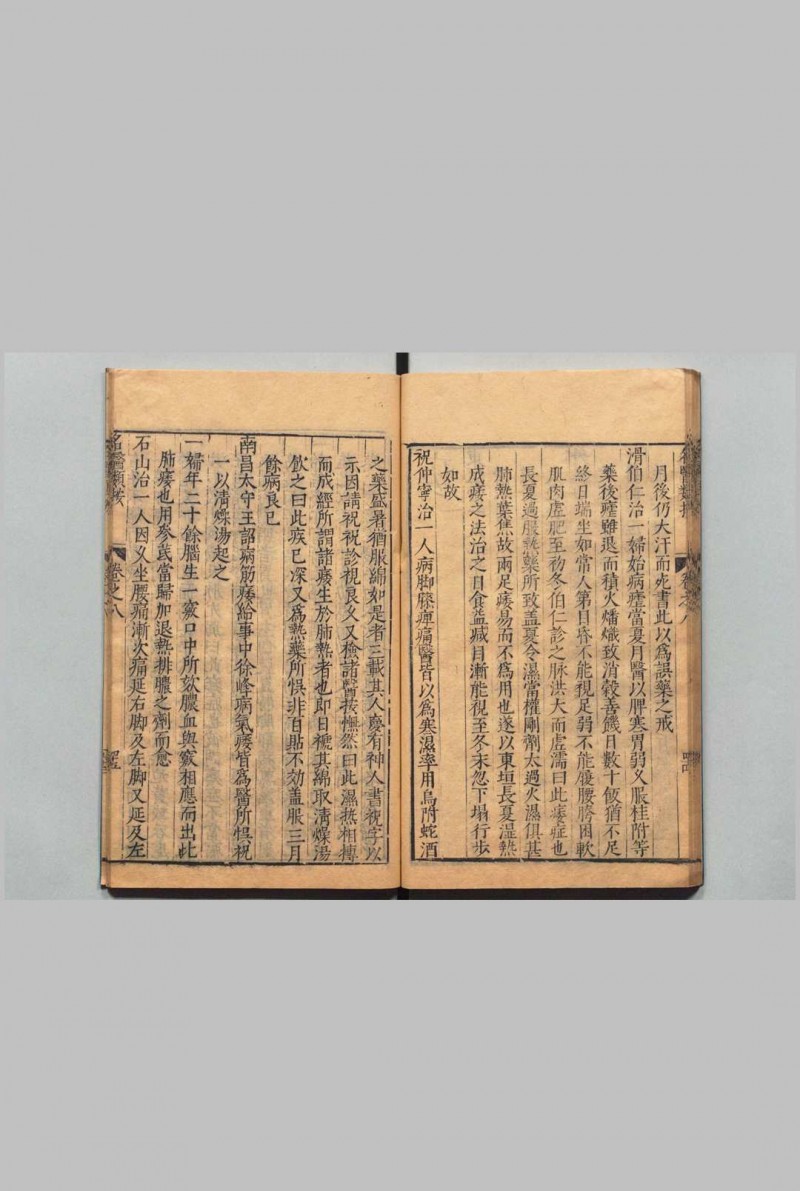 月後仍大汗而死書此以為誤藥之戒
滑伯仁治一婦始病瘧當夏月醫以脾寒胃弱久服桂附等
藥後瘧雖退而積火燔熾致消穀善饑日數十飯猶不足
終日端坐如常人第目昏不能視足弱不能履腰胯困軟
肌肉虛肥至初冬伯仁診之脉洪大而虛濡曰此痿症也
長夏過服熱藥所致盖夏令濕當權剛劑太過火濕俱甚
肺熱葉焦故兩足痿易而不為用也遂以東垣長夏濕熱
成痿之法治之日食益減目漸能視至冬末忽下榻行步
如故
祝仲寧治一人病脚膝痺痛醫皆以為寒濕率用烏附蛇酒
卷之八
之藥盛暑猶服綿如是者三載其人慶有神人書祝字以
示因請祝祝診視良久又檢諸醫按憮然曰此濕熱相搏
而成經所謂諸痿生於肺熱者也即日褫其綿取清燥湯
飲之曰此疾已深又為熱藥所悞非百貼不効盖服三月
餘病良已
南昌太守王詔病筋痿給事中徐峰病氣痿皆為醫所悞祝
一以清燥湯起之
一婦年二十餘腦生一竅口中所欬膿血與竅相應而出此
肺痿也用參芪當歸加退熱排膿之劑而愈
石山治一人因久坐腰痛漸次痛延右脚及左脚又延及左
名醫類按
卷之八